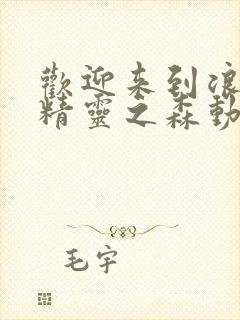 歡迎来到浪
精靈之森動
毛宇